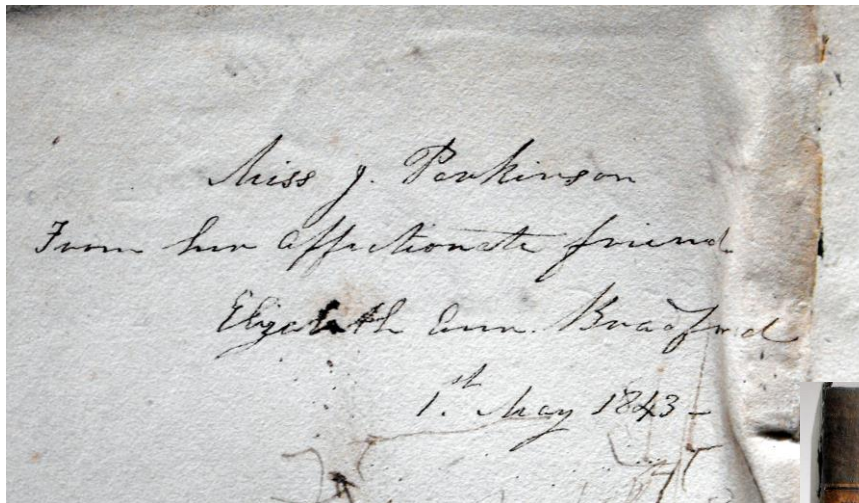 Miss J. Parkinson
From her affectionate friend
Elizabeth Ann. Bradford
1.st May 1843 -